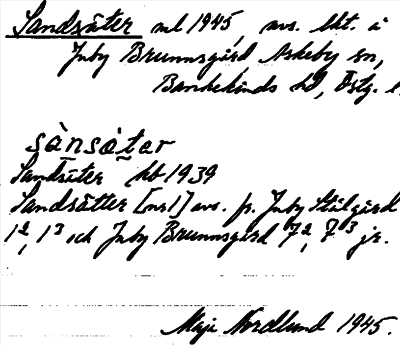 Sandsäter ml 1945, avs. lht. å
Juby Brunnsgård Askeby sn,
Bankekinds hd, Östg. l.
sànsàtar
Sandsäter hb 1939
Sandsätter [nr 1] avs. fr. Juby Stålgård
1², 1³ och Juby Brunnsgård 7², 7³ jr.
Maja Nordlund 1945.